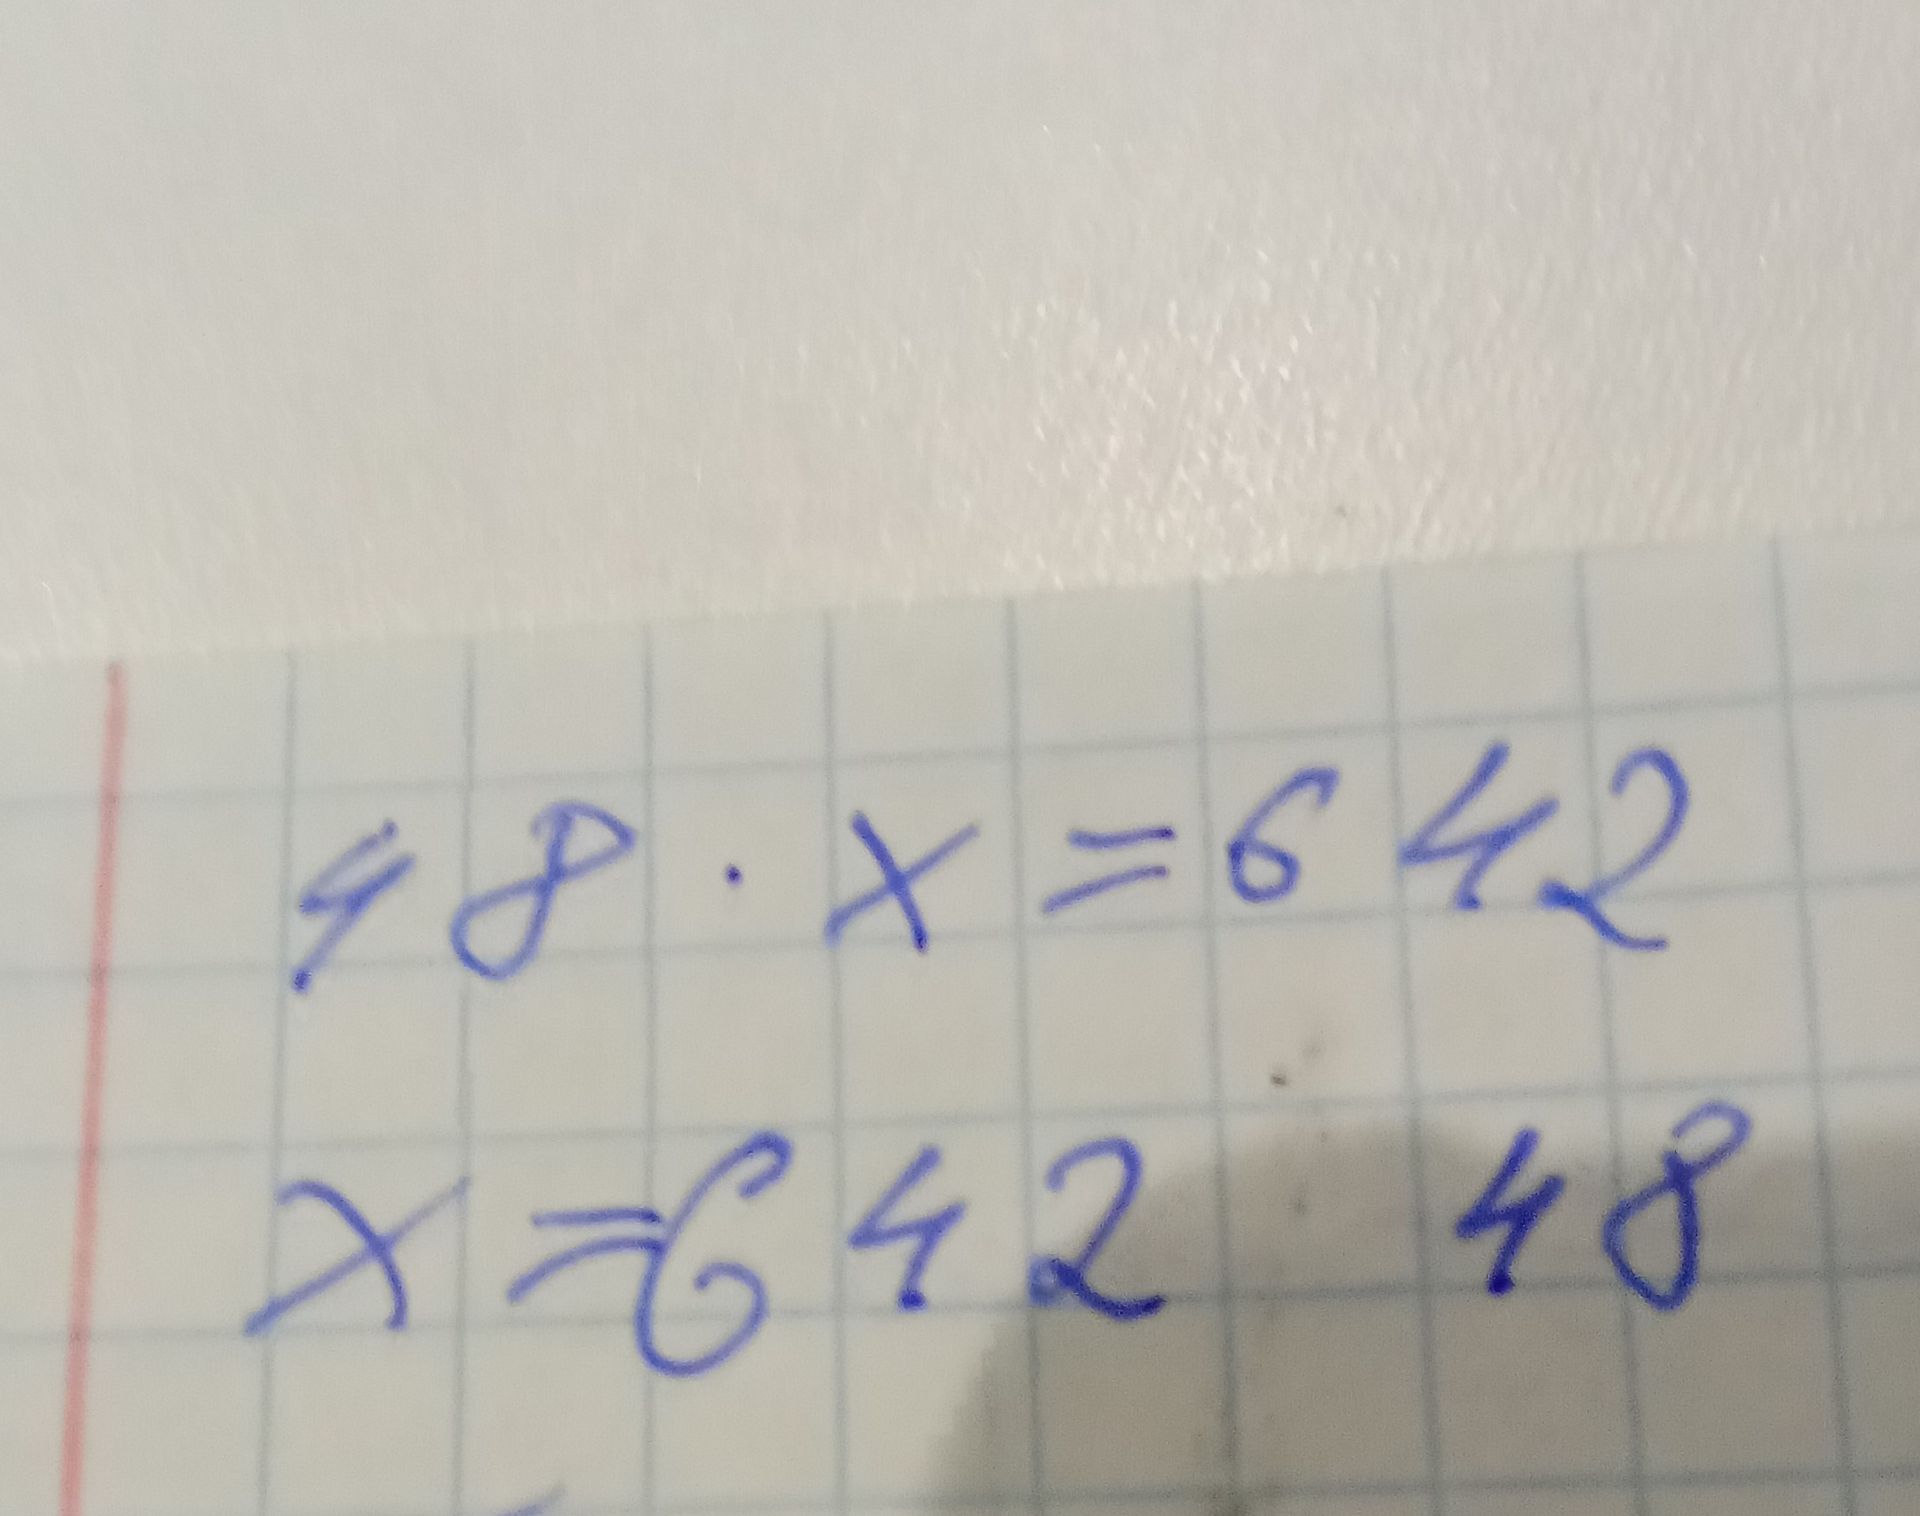 48 · x = 642
x = 642 48